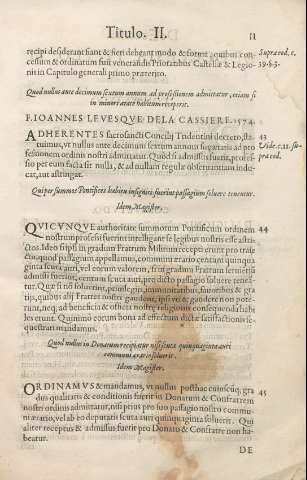 Titulo. II. 11
recipi desiderant fiant & fieri debeant modo & forma, quibus con-
cessum & ordinatum fuit venerandis Prioratibus Castellæ & Legio-
nis in Capitulo generali primo præterito.
Supracod. c.
39. & 3.
Quod nullus ante decimum sextum annum ad professionem admittatur, etiam si
in minori ætate habitum receperit.
F. IOANNES LEVESQVE DELA CASSIERE. 1574.
ADHERENTES sacrosancti Concilij Tridentini decreto, sta-
tuimus, vt nullus ante decimum sextum annum suę ætatis ad pro
fessionem ordinis nostri admittatur. Quòd si admissus fuerit, profes-
sio per eum facta sit nulla, & ad nullam regulæ obseruantiam indu-
cat, aut astringat.
43
Vide. c. 11. su-
pra cod.
Qui per summos Pontifices habitu insigniti fuerint passagium soluere teneantur.
Idem Magister.
QVICVNQVE authoritate summorum Pontificum ordinem
nostrum professi fuerint intelligant se legibus nostris esse astri-
ctos. Ideo si ipsi in gradum Fratrum Militum recepti erunt pro transi-
tu, quod passagium appellamus, communi ærario centum quinqua
ginta scuta auri, vel eorum valorem, si in gradum Fratrum seruientiū
admissi fuerint, centum scuta auri, pro dicto passagio soluere tenean-
tur. Quæ si nō soluerint, priuilegijs, immunitatibus, fauoribus & gra
tijs, quibus alij Fratres nostri gaudent, ipsi vti & gaudere non pote-
runt, neq; ad beneficia & officia nostræ religionis consequenda habi
les erunt. Quinimo eorum bona ad effectum dictæ satisfactionis se-
questrari mandamus.
44
Quod nullus in Donatum recipiatur nisi prius quinquaginta auri
communi ærario soluerit.
Idem Magister.
ORDINAMVS & mandamus, vt nullus posthac cuiuscūq; gra
dus qualitatis & conditionis fuerit in Donatum & Confratrem
nostri ordinis admittatur, nisi prius pro suo passagio nostro commu-
ni ærario, vel ab eo deputatis scuta auri quinquaginta soluerit. Qui
aliter receptus & admissus fuerit pro Donato & Confratre non ha-
beatur.
45
DE